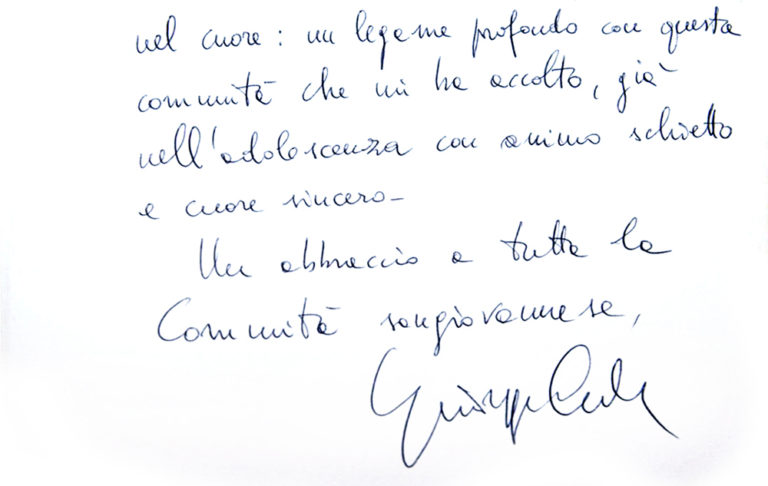 nel cuore: un legame profondo con questa
comunità che mi ha accolto, già
nell'adolescenza con animo schietto
e cuore sincero-
Un abbraccio a tutta la
Comunità sangiovannese,
Giuseppe Conte